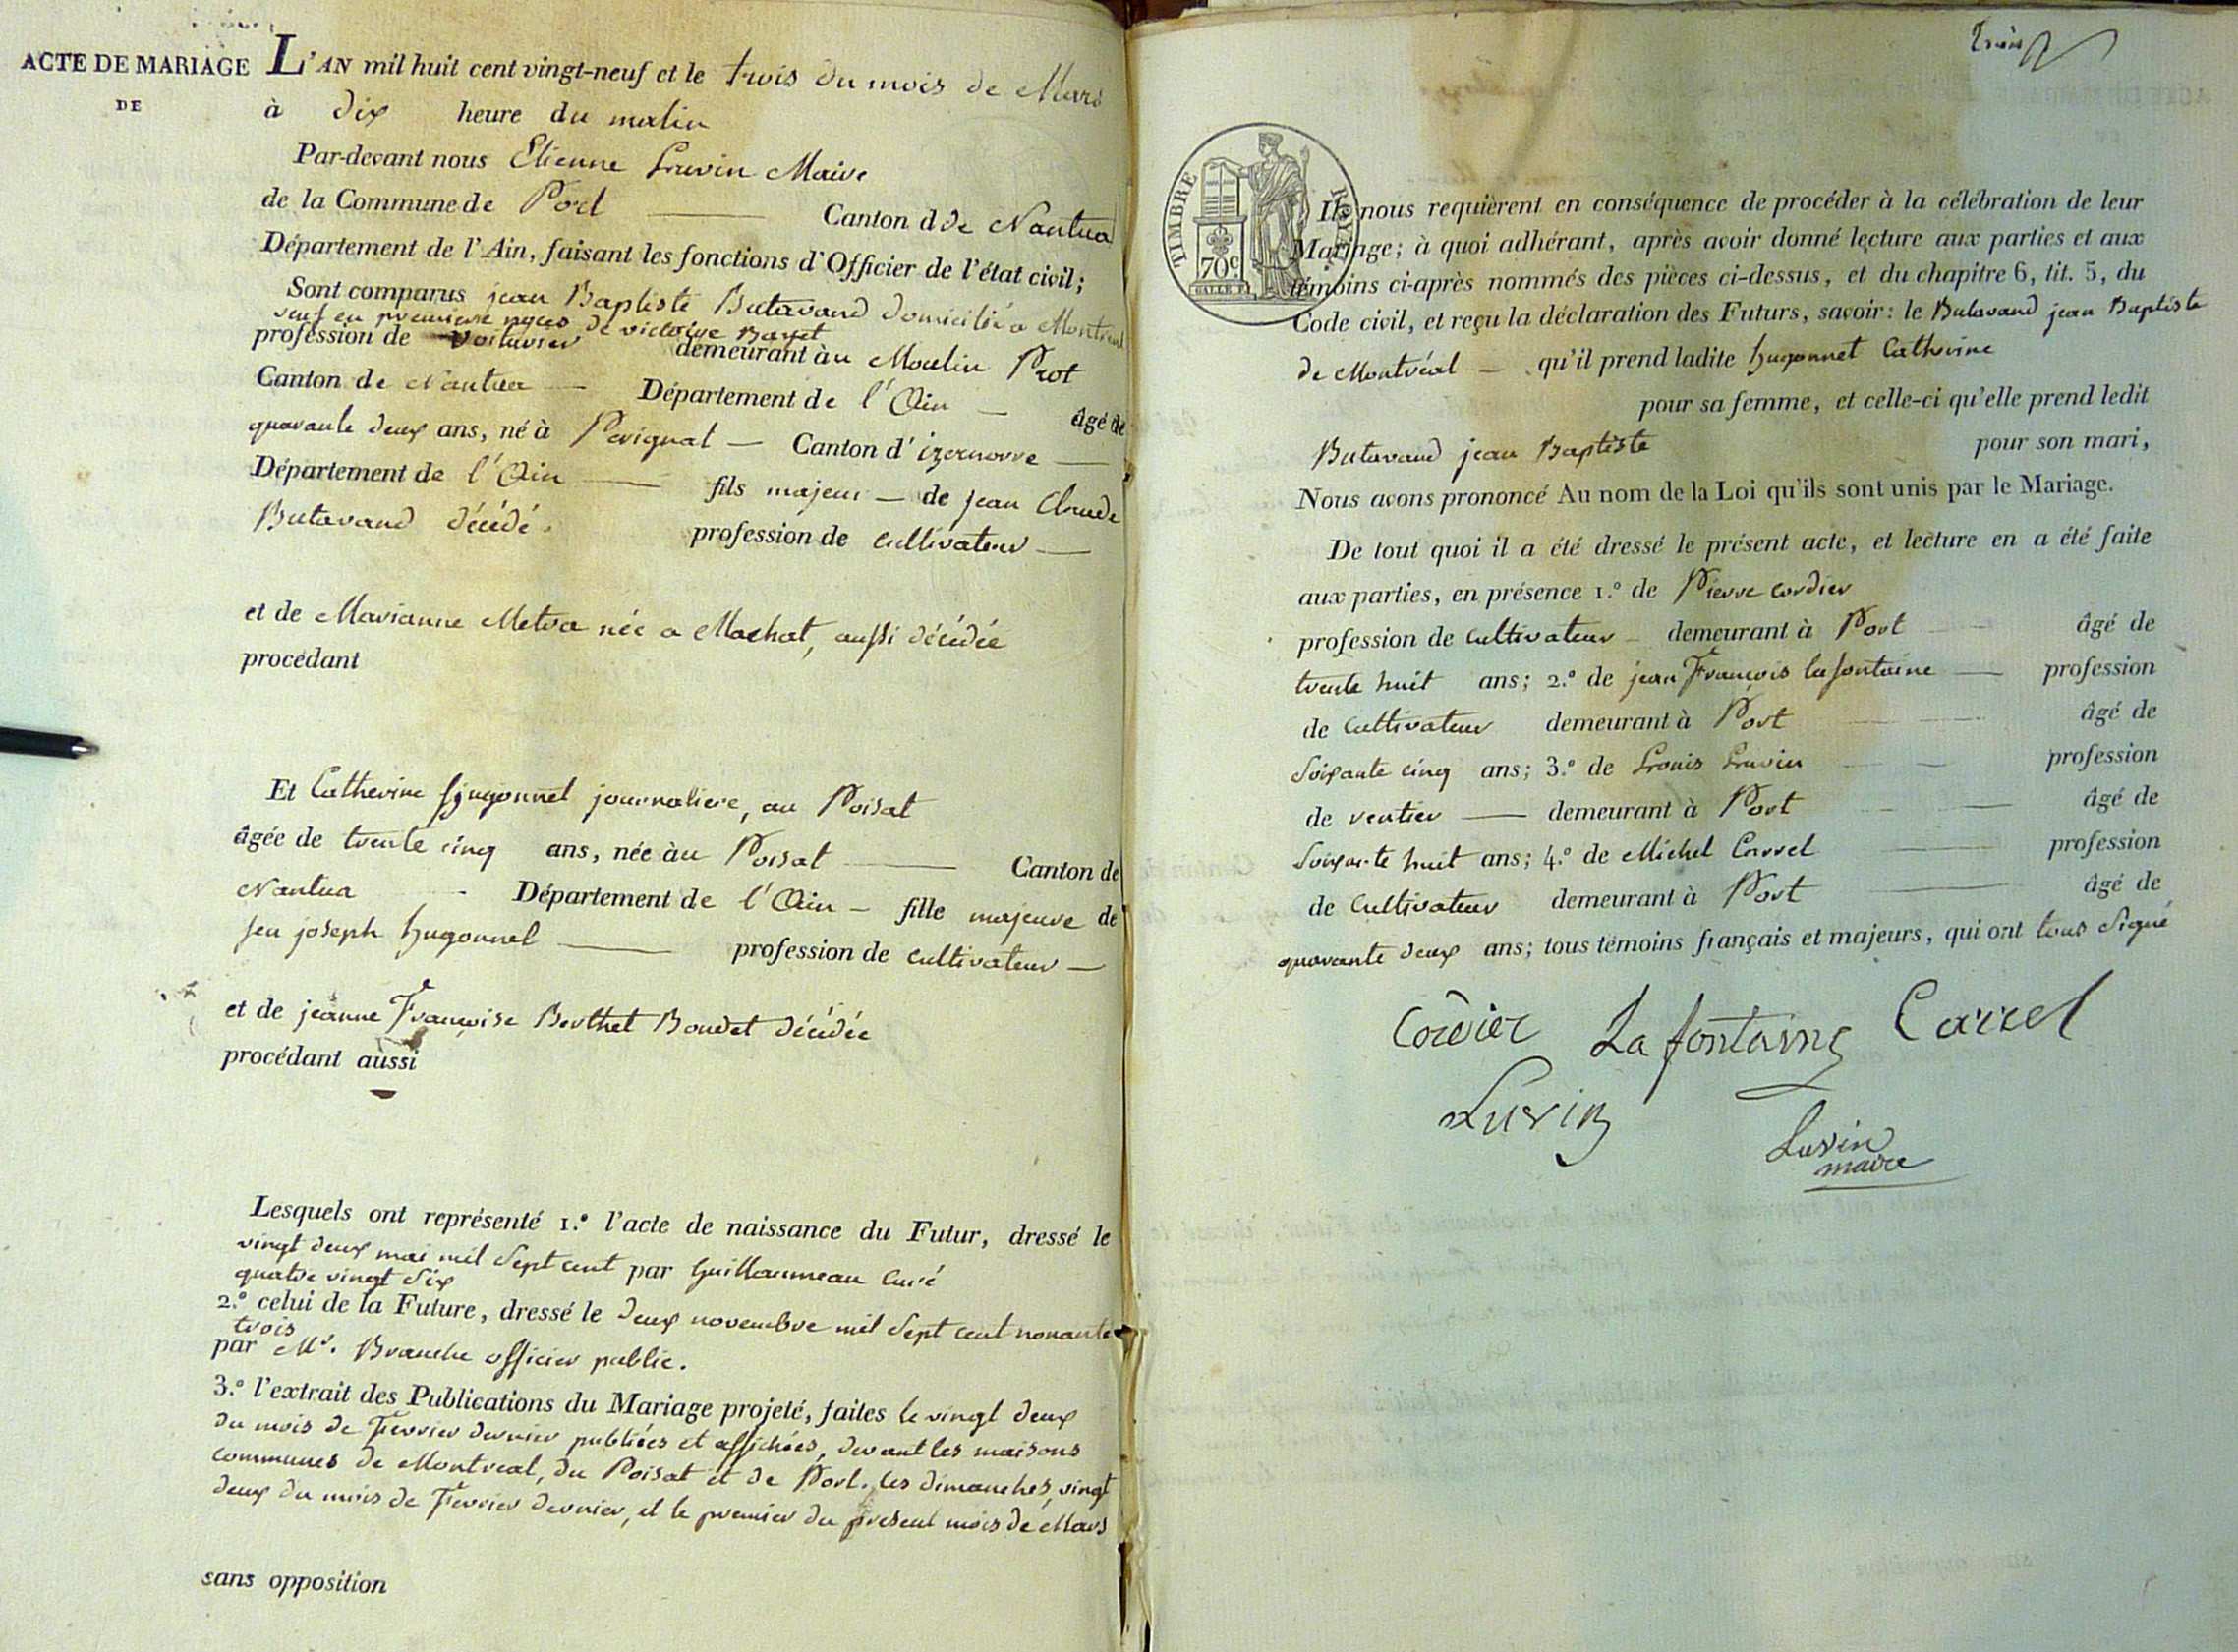 ACTE DE MARIAGE
DE
L'AN mil huit cent vingt-neuf et le trois du mois de Mars
à dix heure du matin
Par-devant nous Etienne Luvin Maire
de la Commune de Port Canton d de Nantua
Département de l'Ain, faisant les fonctions d'Officier de l'état civil;
Sont comparus jean Baptiste Butavand domicilié a Montréal
veuf en premiere noces de victoire Bayet
profession de voiturier demeurant àu Moulin Prot
Canton de Nantua Département de l'Ain âgé de
quarante deux ans, né à Perignat Canton d'izernorre
Département de l'Ain fils majeur de jean Claude
Butavand décédé. profession de cultivateur
et de Marianne Metra née a Machat, aussi décédée
procédant
Et Catherine hugonnet journaliere, au Poisat
âgée de trente cinq ans, née àu Poisat Canton de
Nantua Département de l'Ain fille majeure de
feu joseph hugonnet profession de cultivateur
et de jeanne Françoise Berthet Boudet décédée
procédant aussi
Lesquels ont représenté 1.º l'acte de naissance du Futur, dressé le
vingt deux mai mil sept cent par Guillaumeau Curé
quatre vingt six
2.º celui de la Future, dressé le deux novembre mil sept cent nonante
trois
par Mr. Branche officier public.
3.º l'extrait des Publications du Mariage projeté, faites le vingt deux
du mois de Fevrier dernier publiées et affichées, devant les maisons
communes de Montreal, du Poisat et de Port. les dimanches, vingt
deux du mois de Fevrier dernier, et le premier du présent mois de Mars
sans opposition
trois
TIMBRE ROYAL
70c
Ils nous requièrent en conséquence de procéder à la célébration de leur
Mariage; à quoi adhérant, après avoir donné lecture aux parties et aux
témoins ci-après nommés des pièces ci-dessus, et du chapitre 6, tit. 5, du
Code civil, et reçu la déclaration des Futurs, savoir: le Butavand jean Baptiste
de Montréal qu'il prend ladite hugonnet Catherine
pour sa femme, et celle-ci qu'elle prend ledit
Butavand jean Baptiste pour son mari,
Nous avons prononcé Au nom de la Loi qu'ils sont unis par le Mariage.
De tout quoi il a été dressé le présent acte, et lecture en a été faite
aux parties, en présence 1.º de Pierre cordier
profession de cultivateur demeurant à Port âgé de
trente huit ans; 2.º de jean François lafontaine profession
de cultivateur demeurant à Port âgé de
Soixante cinq ans; 3.º de Louis Luvin profession
de rentier demeurant à Port âgé de
Soixante huit ans; 4.º de Michel Carrel profession
de Cultivateur demeurant à Port âgé de
quarante deux ans; tous témoins français et majeurs, qui ont tous signé
Cordier Lafontaine Carrel
Luvin
Luvin
maire